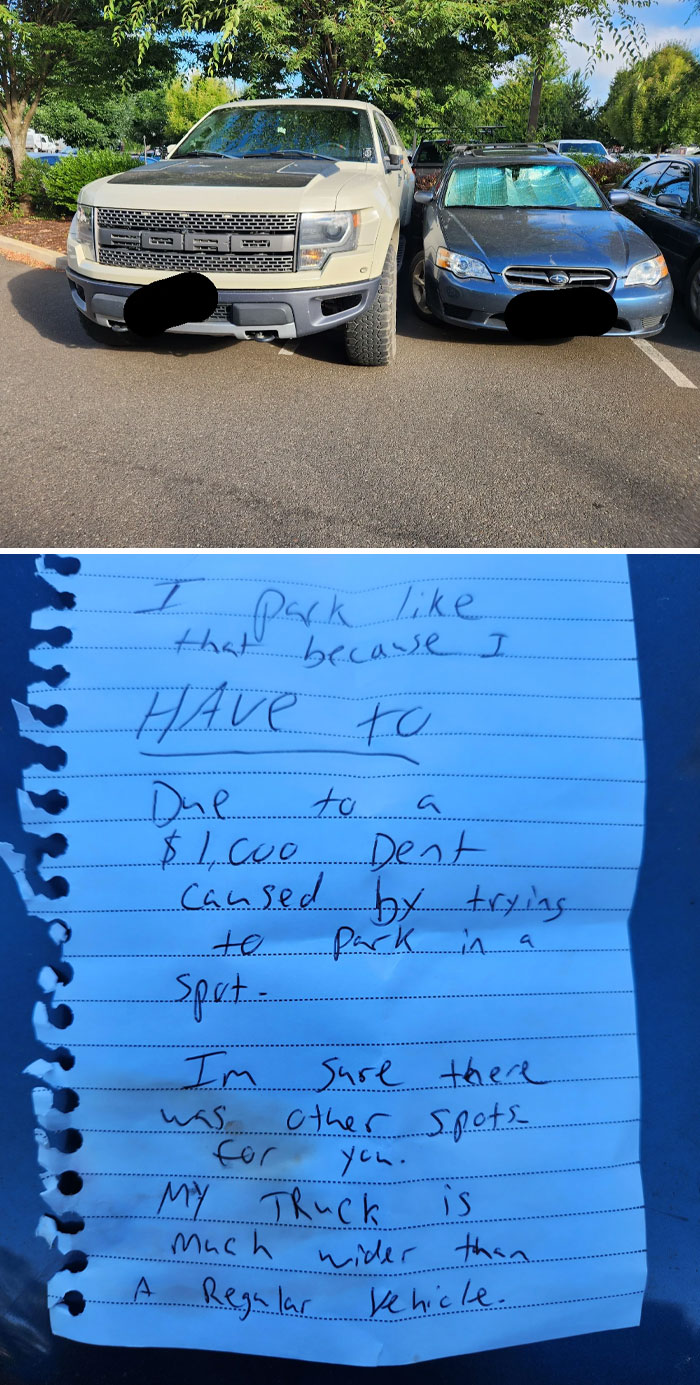 FORD
I park like
that because I
HAVE to
Due to a
$1,000 Dent
caused by trying
to park in a
spot.
Im sure there
was other spots
for you.
MY TRuck is
much wider than
A Regular Vehicle.